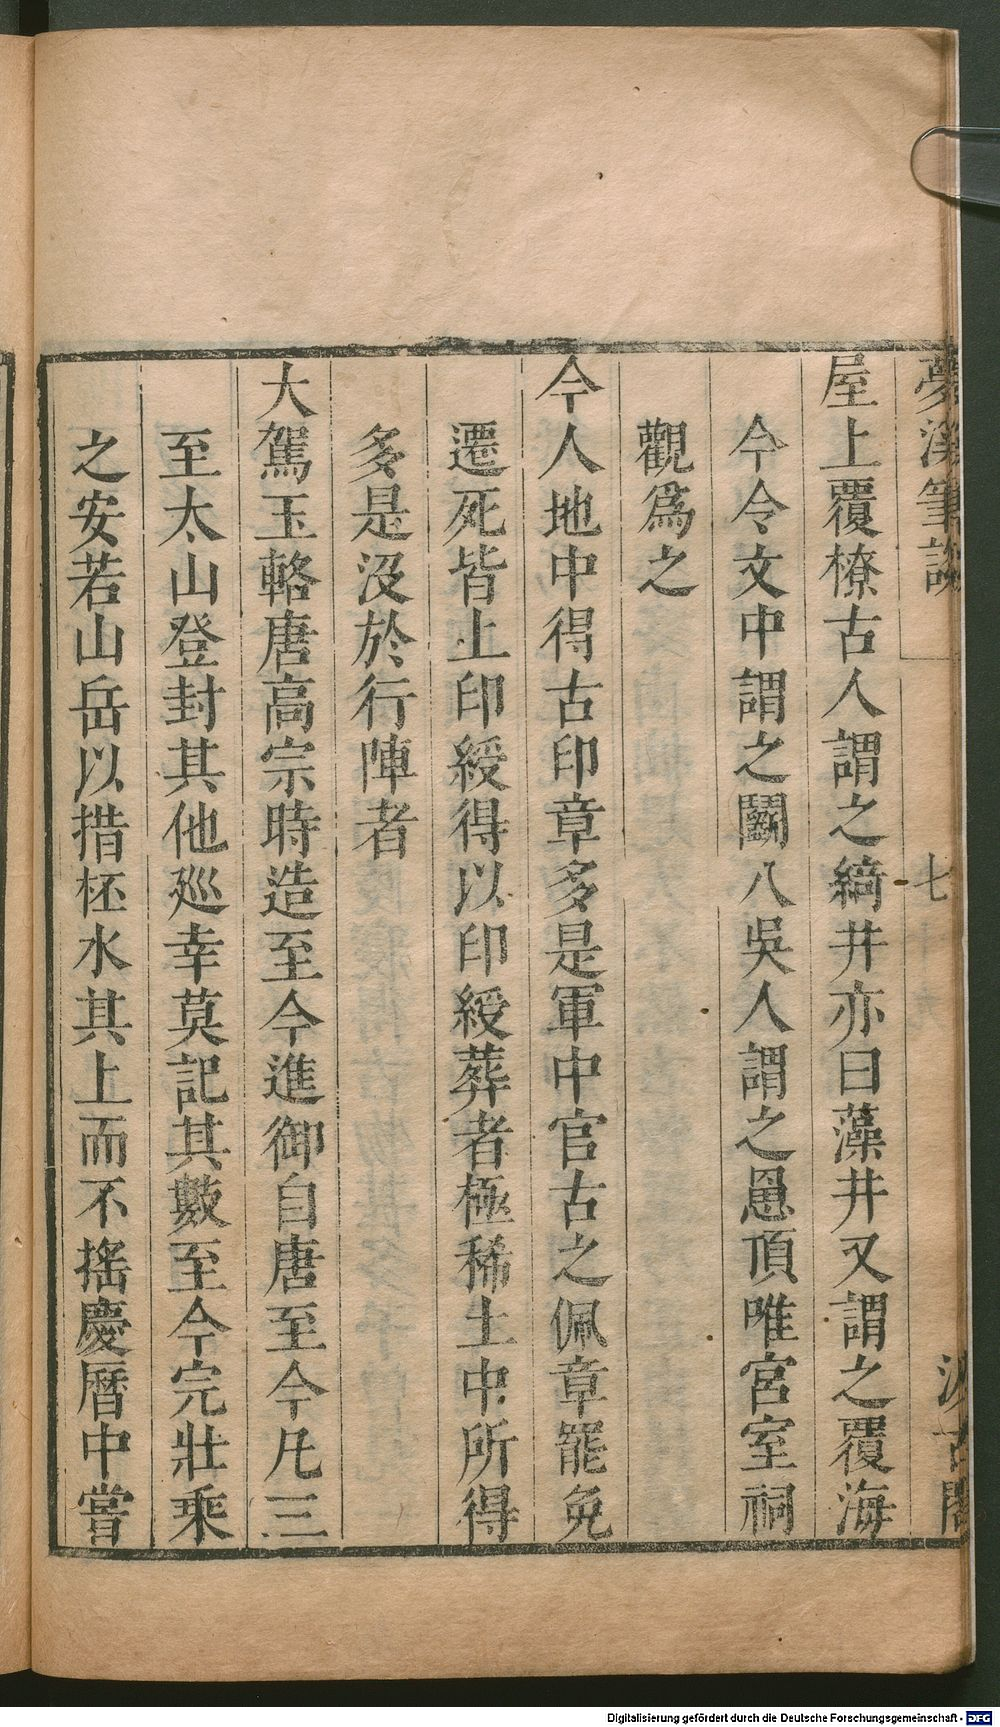 夢溪筆談 七 汲古閣
屋上覆橑古人謂之綺井亦曰藻井又謂之覆海
今令文中謂之鬬八吳人謂之罳頂唯宮室祠
觀爲之
今人地中得古印章多是軍中官古之佩章罷免
遷死皆上印綬得以印綬葬者極稀土中所得
多是沒於行陣者
大駕玉輅唐高宗時造至今進御自唐至今凡三
至太山登封其他廵幸莫記其數至今完壯乘
之安若山岳以措桮水其上而不搖慶曆中嘗
Digitalisierung gefördert durch die Deutsche Forschungsgemeinschaft - DFG